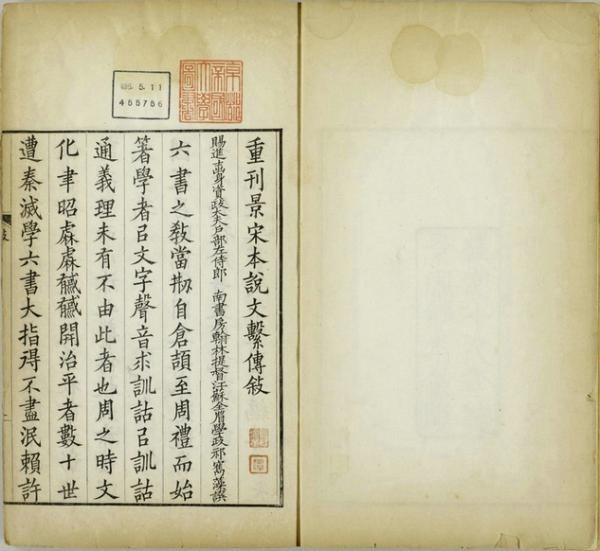 重刊景宋本說文繫傳敍
賜進士出身資政大夫戶部左侍郎 南書房翰林提督江蘇全省學政祁寯藻譔
六書之敎當刱自倉頡至周禮而始
箸學者㠯文字聲音求訓詁㠯訓詁
通義理未有不由此者也周之時文
化聿昭虨虨戫戫開治平者數十世
遭秦滅學六書大指得不盡泯賴許
5.11
455786